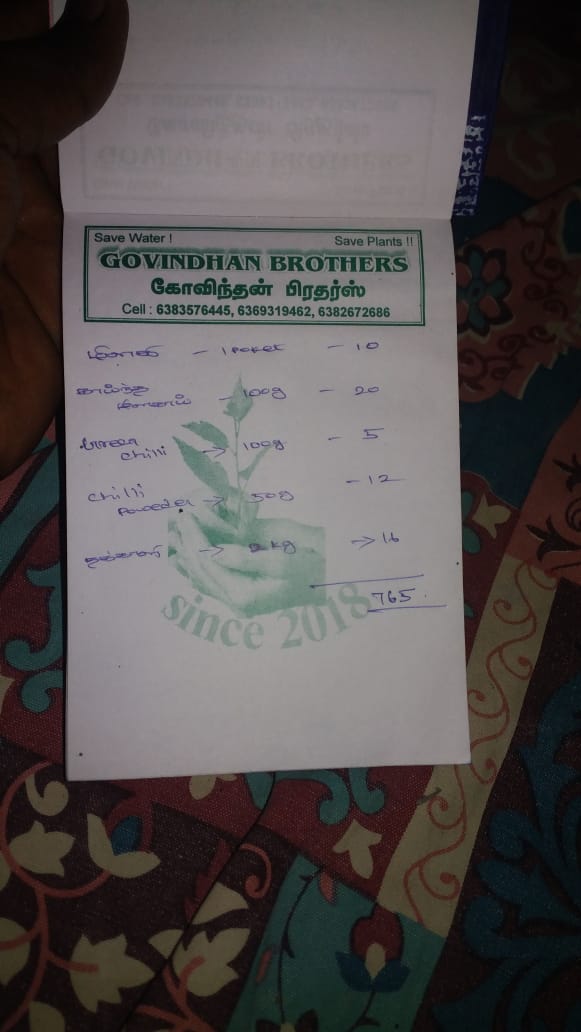 Save Water ! Save Plants !!
GOVINDHAN BROTHERS
கோவிந்தன் பிரதர்ஸ்
Cell : 6383576445, 6369319462, 6382672686
- 1 - 10
காய்ந்த - 100g - 20
மிளகாய்
chilli → 100g - 5
chilli → 50g - 12
Powder
தக்காளி → kg → 16
765
since 2018